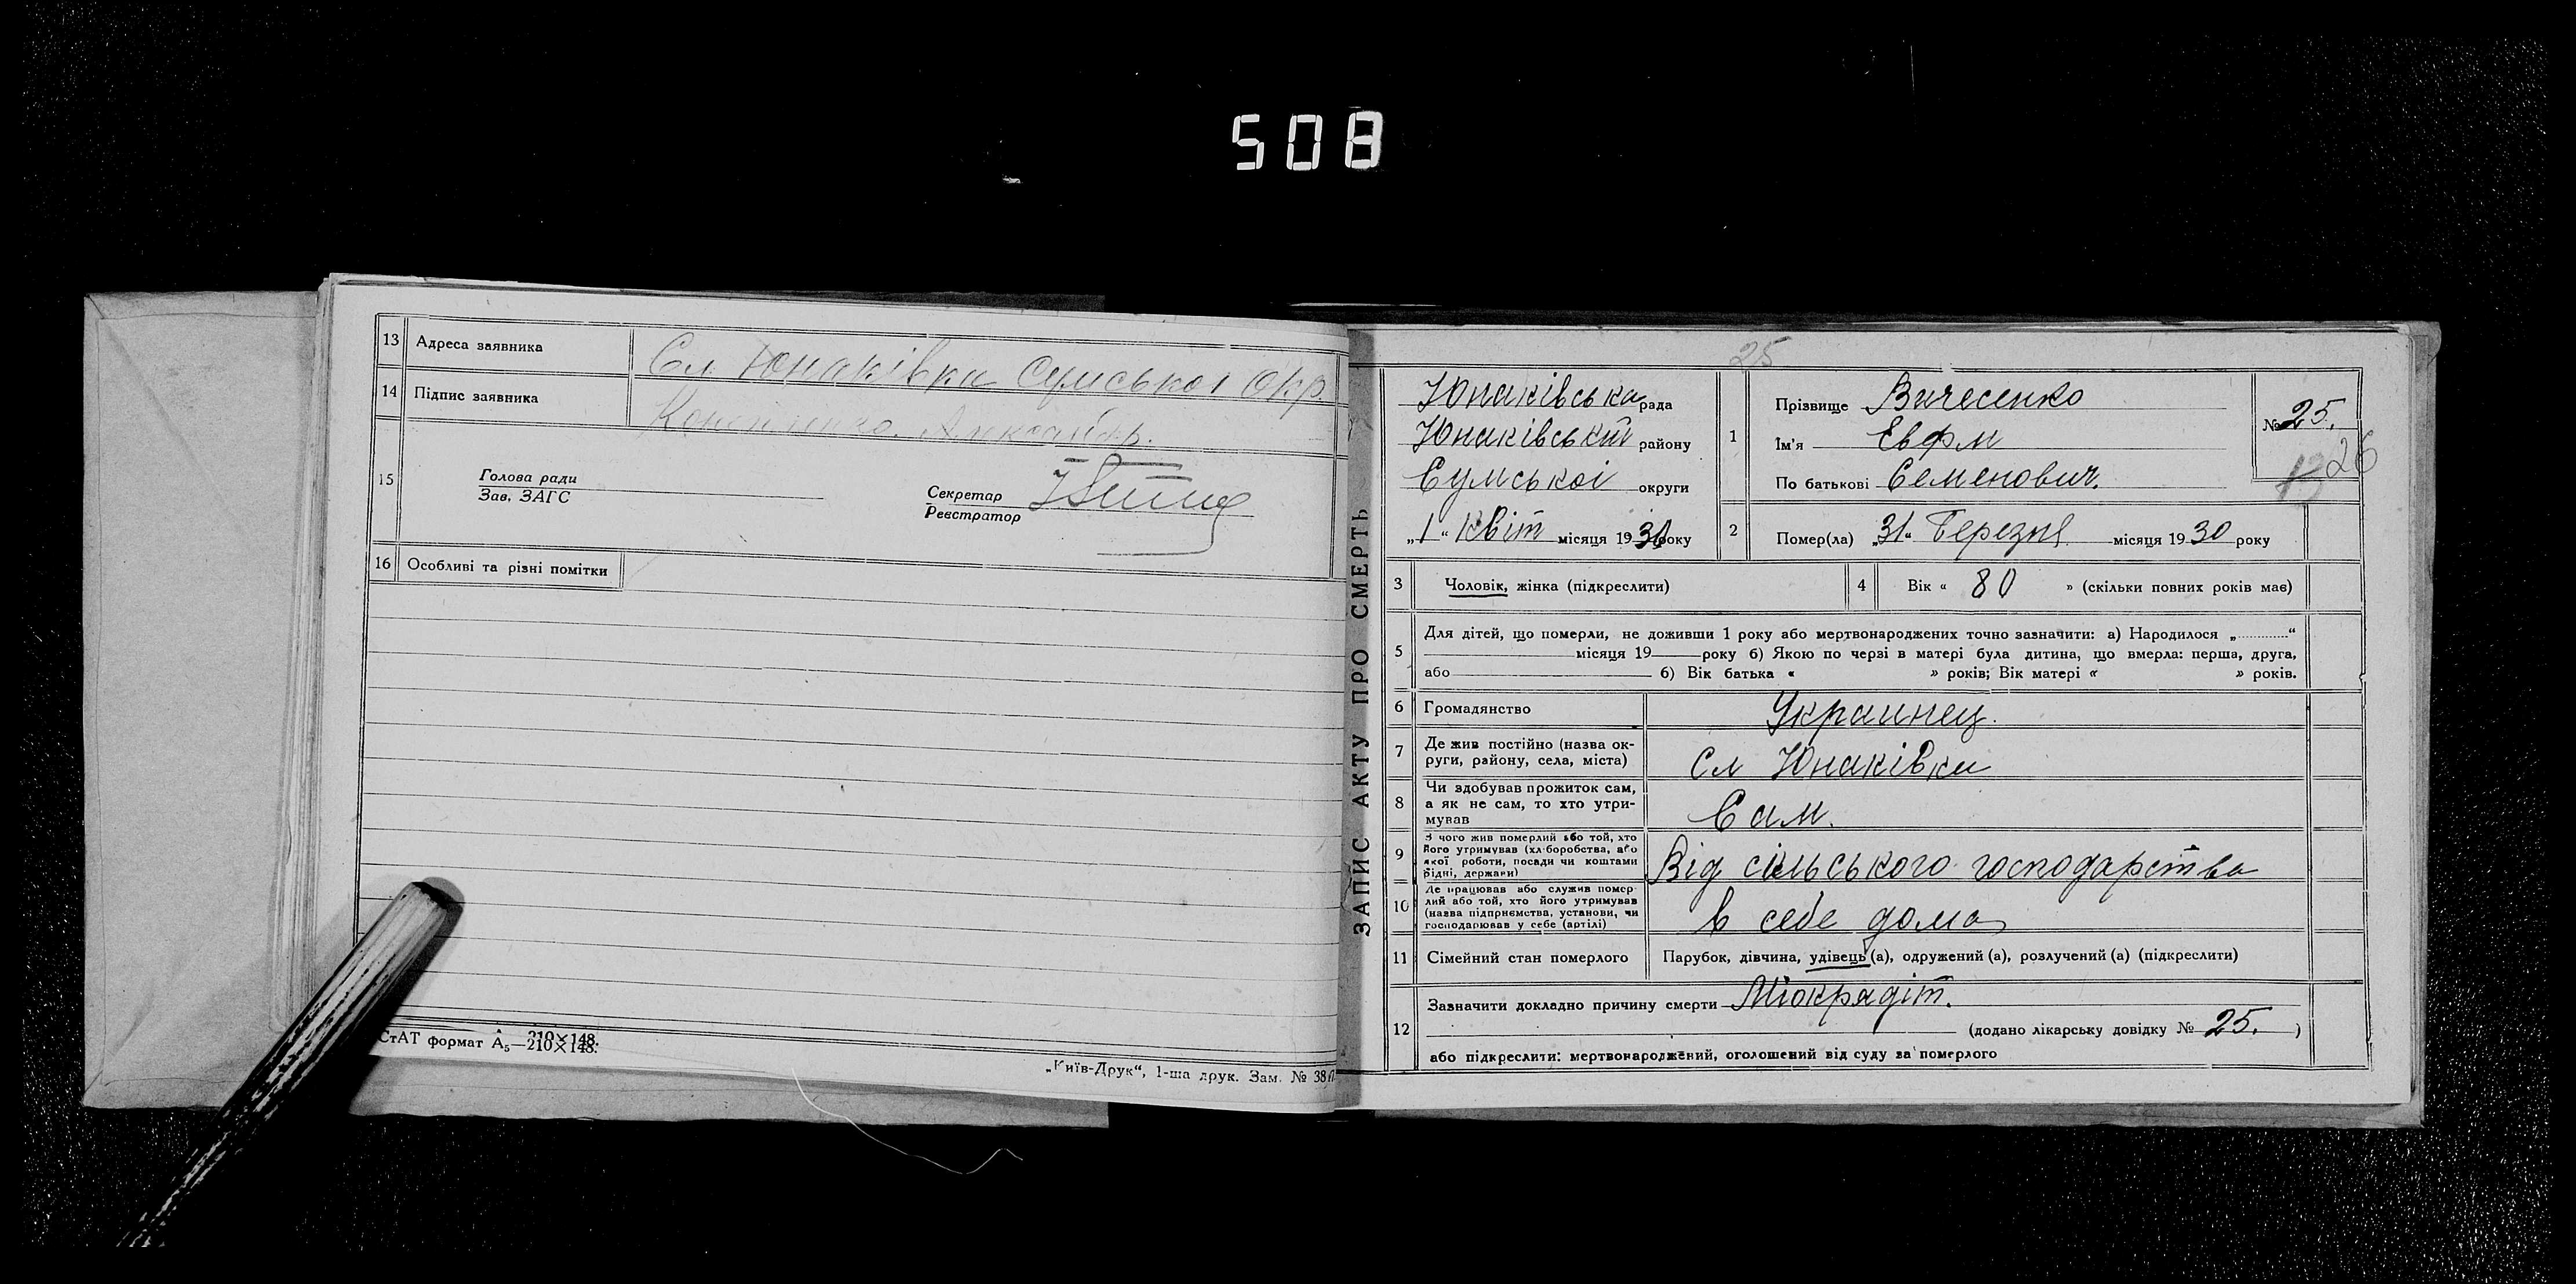 508
13 Адреса заявника Сл Юнаківка Сумської Окр.
14 Підпис заявника
15
Голова ради
Зав. ЗАГС
Секретар
Реєстратор
16 Особливі та різні помітки
СтАТ формат А5—210×148.
„Київ-Друк“, 1-ша друк. Зам. №
ЗАПИС АКТУ ПРО СМЕРТЬ
25
Юнаківська рада
Юнаківський району
Сумської округи
„1“ Квіт місяця 1930 року
1
Прізвище Вичесенко
Ім'я Евфм
По батькові Семенович.
№ 25.
26
2 Помер(ла) „31“ Березня місяця 1930 року
3 Чоловік, жінка (підкреслити)
4 Вік « 80 » (скільки повних років має)
5 Для дітей, що померли, не доживши 1 року або мертвонароджених точно зазначити: а) Народилося „............“
місяця 19 року б) Якою по черзі в матері була дитина, що вмерла: перша, друга,
або б) Вік батька « » років; Вік матері « » років.
6 Громадянство Украинец.
7 Де жив постійно (назва ок-
руги, району, села, міста) Сл Юнаківка
8 Чи здобував прожиток сам,
а як не сам, то хто утри-
мував Сам.
9 З чого жив померлий або той, хто
його утримував (хліборобства, або
якої роботи, посади чи коштами
рідні, держави) Від сільського господарства
10 Де працював або служив помер-
лий або той, хто його утримував
(назва підприємства, установи, чи
господарював у себе (артілі) в себе дома
11 Сімейний стан померлого Парубок, дівчина, удівець (а), одружений (а), розлучений (а) (підкреслити)
12 Зазначити докладно причину смерти Міокрадіт.
(додано лікарську довідку № 25. )
або підкреслити: мертвонароджений, оголошений від суду за померлого